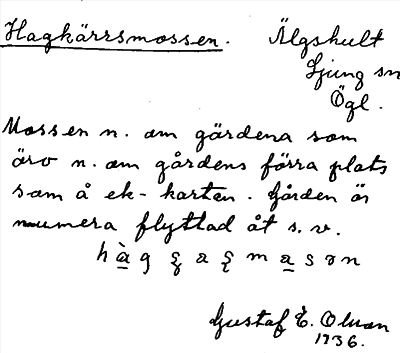 Hagkärrsmossen. Älgshult
Ljung sn
Ögl.
Mossen n. om gärdena som
äro n. om gårdens förra plats
som å ek-kartan. Gården är
numera flyttad åt s.v.
Gustaf E. Olsson
1936.